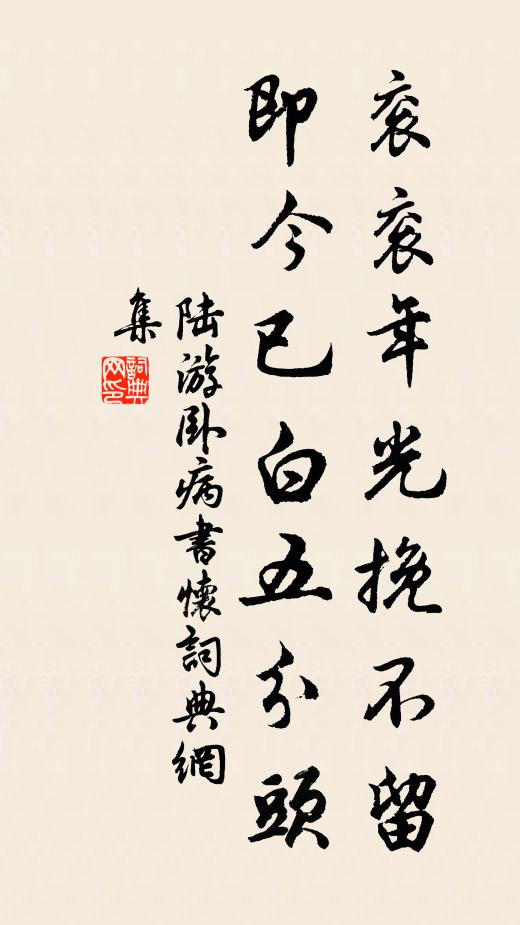 衮衮年光挽不留
即今已白五分頭
陆游卧病書懷詞典網
集
詞典
网印